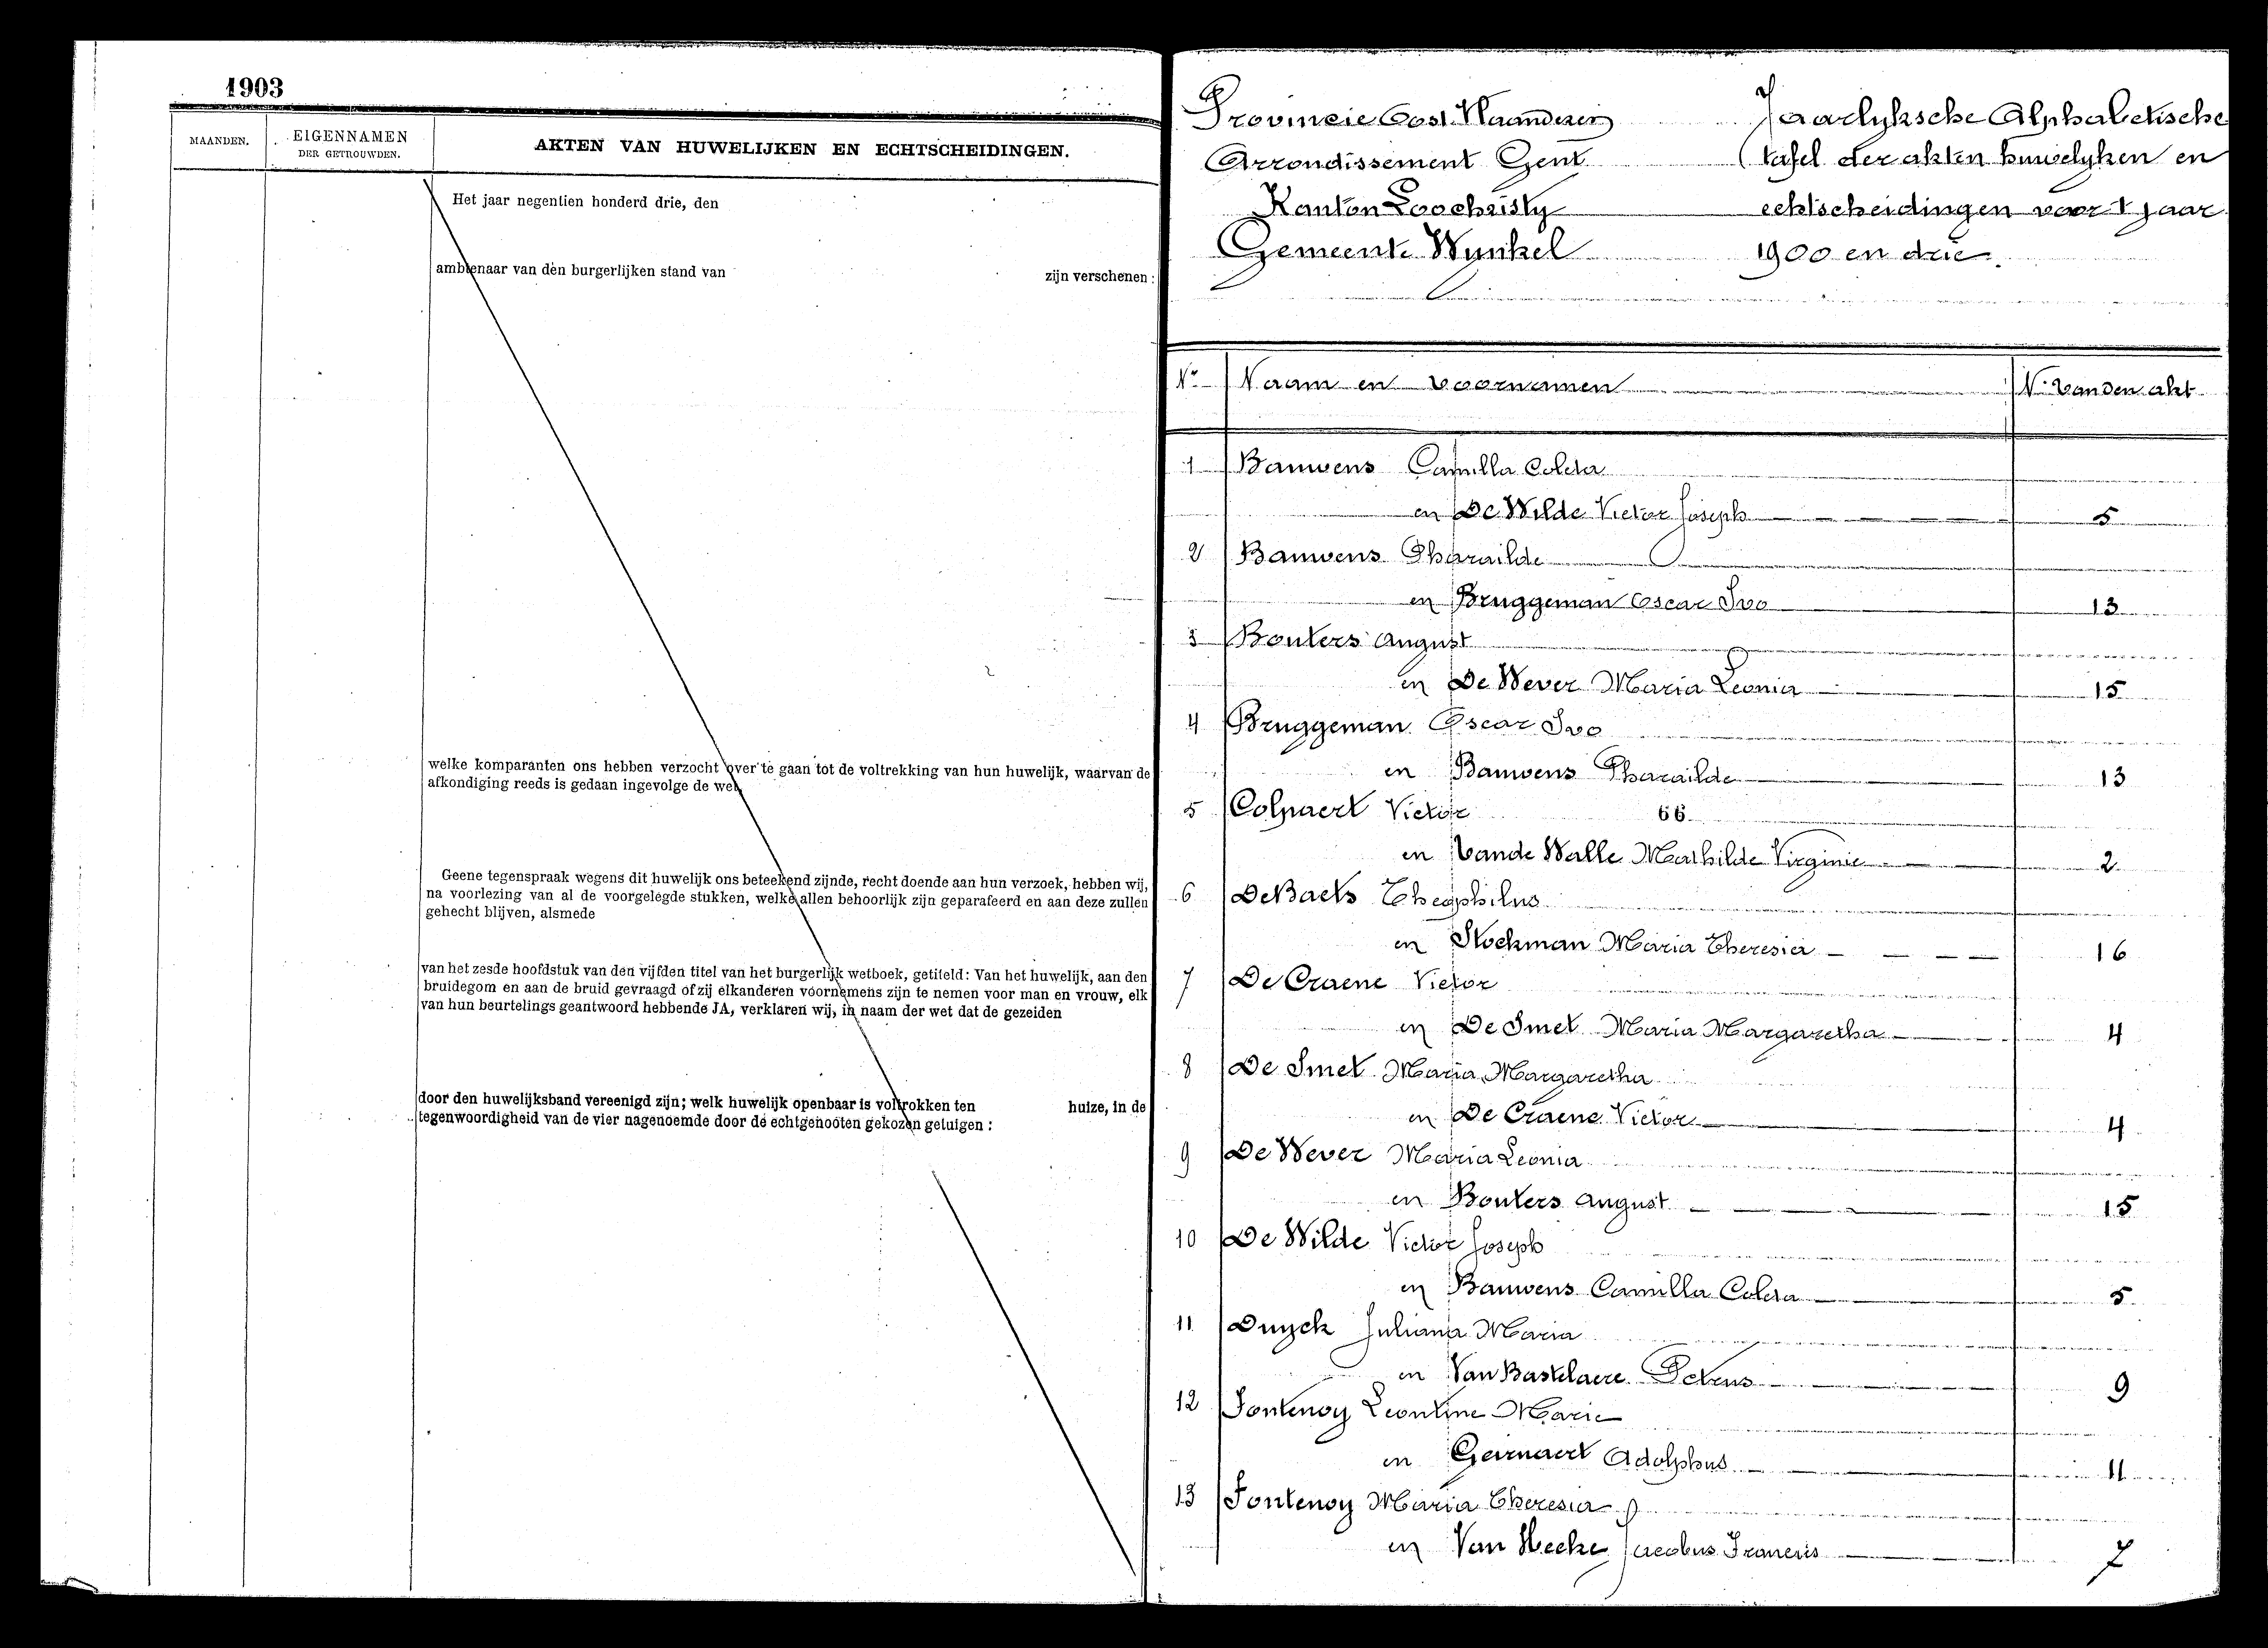 1903
MAANDEN.
EIGENNAMEN
DER GETROUWDEN.
AKTEN VAN HUWELIJKEN EN ECHTSCHEIDINGEN.
Het jaar negentien honderd drie, den
ambtenaar van den burgerlijken stand van zijn verschenen :
welke komparanten ons hebben verzocht over te gaan tot de voltrekking van hun huwelijk, waarvan de
afkondiging reeds is gedaan ingevolge de wet,
Geene tegenspraak wegens dit huwelijk ons beteekend zijnde, recht doende aan hun verzoek, hebben wij,
na voorlezing van al de voorgelegde stukken, welke allen behoorlijk zijn geparafeerd en aan deze zullen
gehecht blijven, alsmede
van het zesde hoofdstuk van den vijfden titel van het burgerlijk wetboek, getiteld: Van het huwelijk, aan den
bruidegom en aan de bruid gevraagd of zij elkanderen voornemens zijn te nemen voor man en vrouw, elk
van hun beurtelings geantwoord hebbende JA, verklaren wij, in naam der wet dat de gezeiden
door den huwelijksband vereenigd zijn; welk huwelijk openbaar is voltrokken ten huize, in de
tegenwoordigheid van de vier nagenoemde door de echtgenooten gekozen getuigen :
Provincie Oost Vlaanderen
Arrondissement Gent
Kanton Loochristy
Gemeente Wynkel
Jaarlyksche Alphabetische
tafel der akten huwelyken en
echtscheidingen voor 't jaar
1900 en drie.
No Naam en voornamen No van den akt
1 Bauwens Camilla Coleta
en De Wilde Victor Joseph 5
2 Bauwens Pharailde
en Bruggeman Oscar Ivo 13
3 Bouters August
en De Wever Maria Leonia 15
4 Bruggeman Oscar Ivo
en Bauwens Pharailde 13
5 Colpaert Victor 66
en Vande Walle Mathilde Virginie 2
6 DeBaets Theophilus
en Stockman Maria Theresia 16
7 De Craene Victor
en De Smet Maria Margaretha 4
8 De Smet Maria Margaretha
en De Craene Victor 4
9 De Wever Maria Leonia
en Bouters August 15
10 De Wilde Victor Joseph
en Bauwens Camilla Coleta 5
11 Duyck Juliana Maria
en Van Bastelaere Petrus 9
12 Fontenoy Leontine Marie
en Geirnaert Adolphus 11
13 Fontenoy Maria Theresia
en Van Hecke Jacobus Francis 7